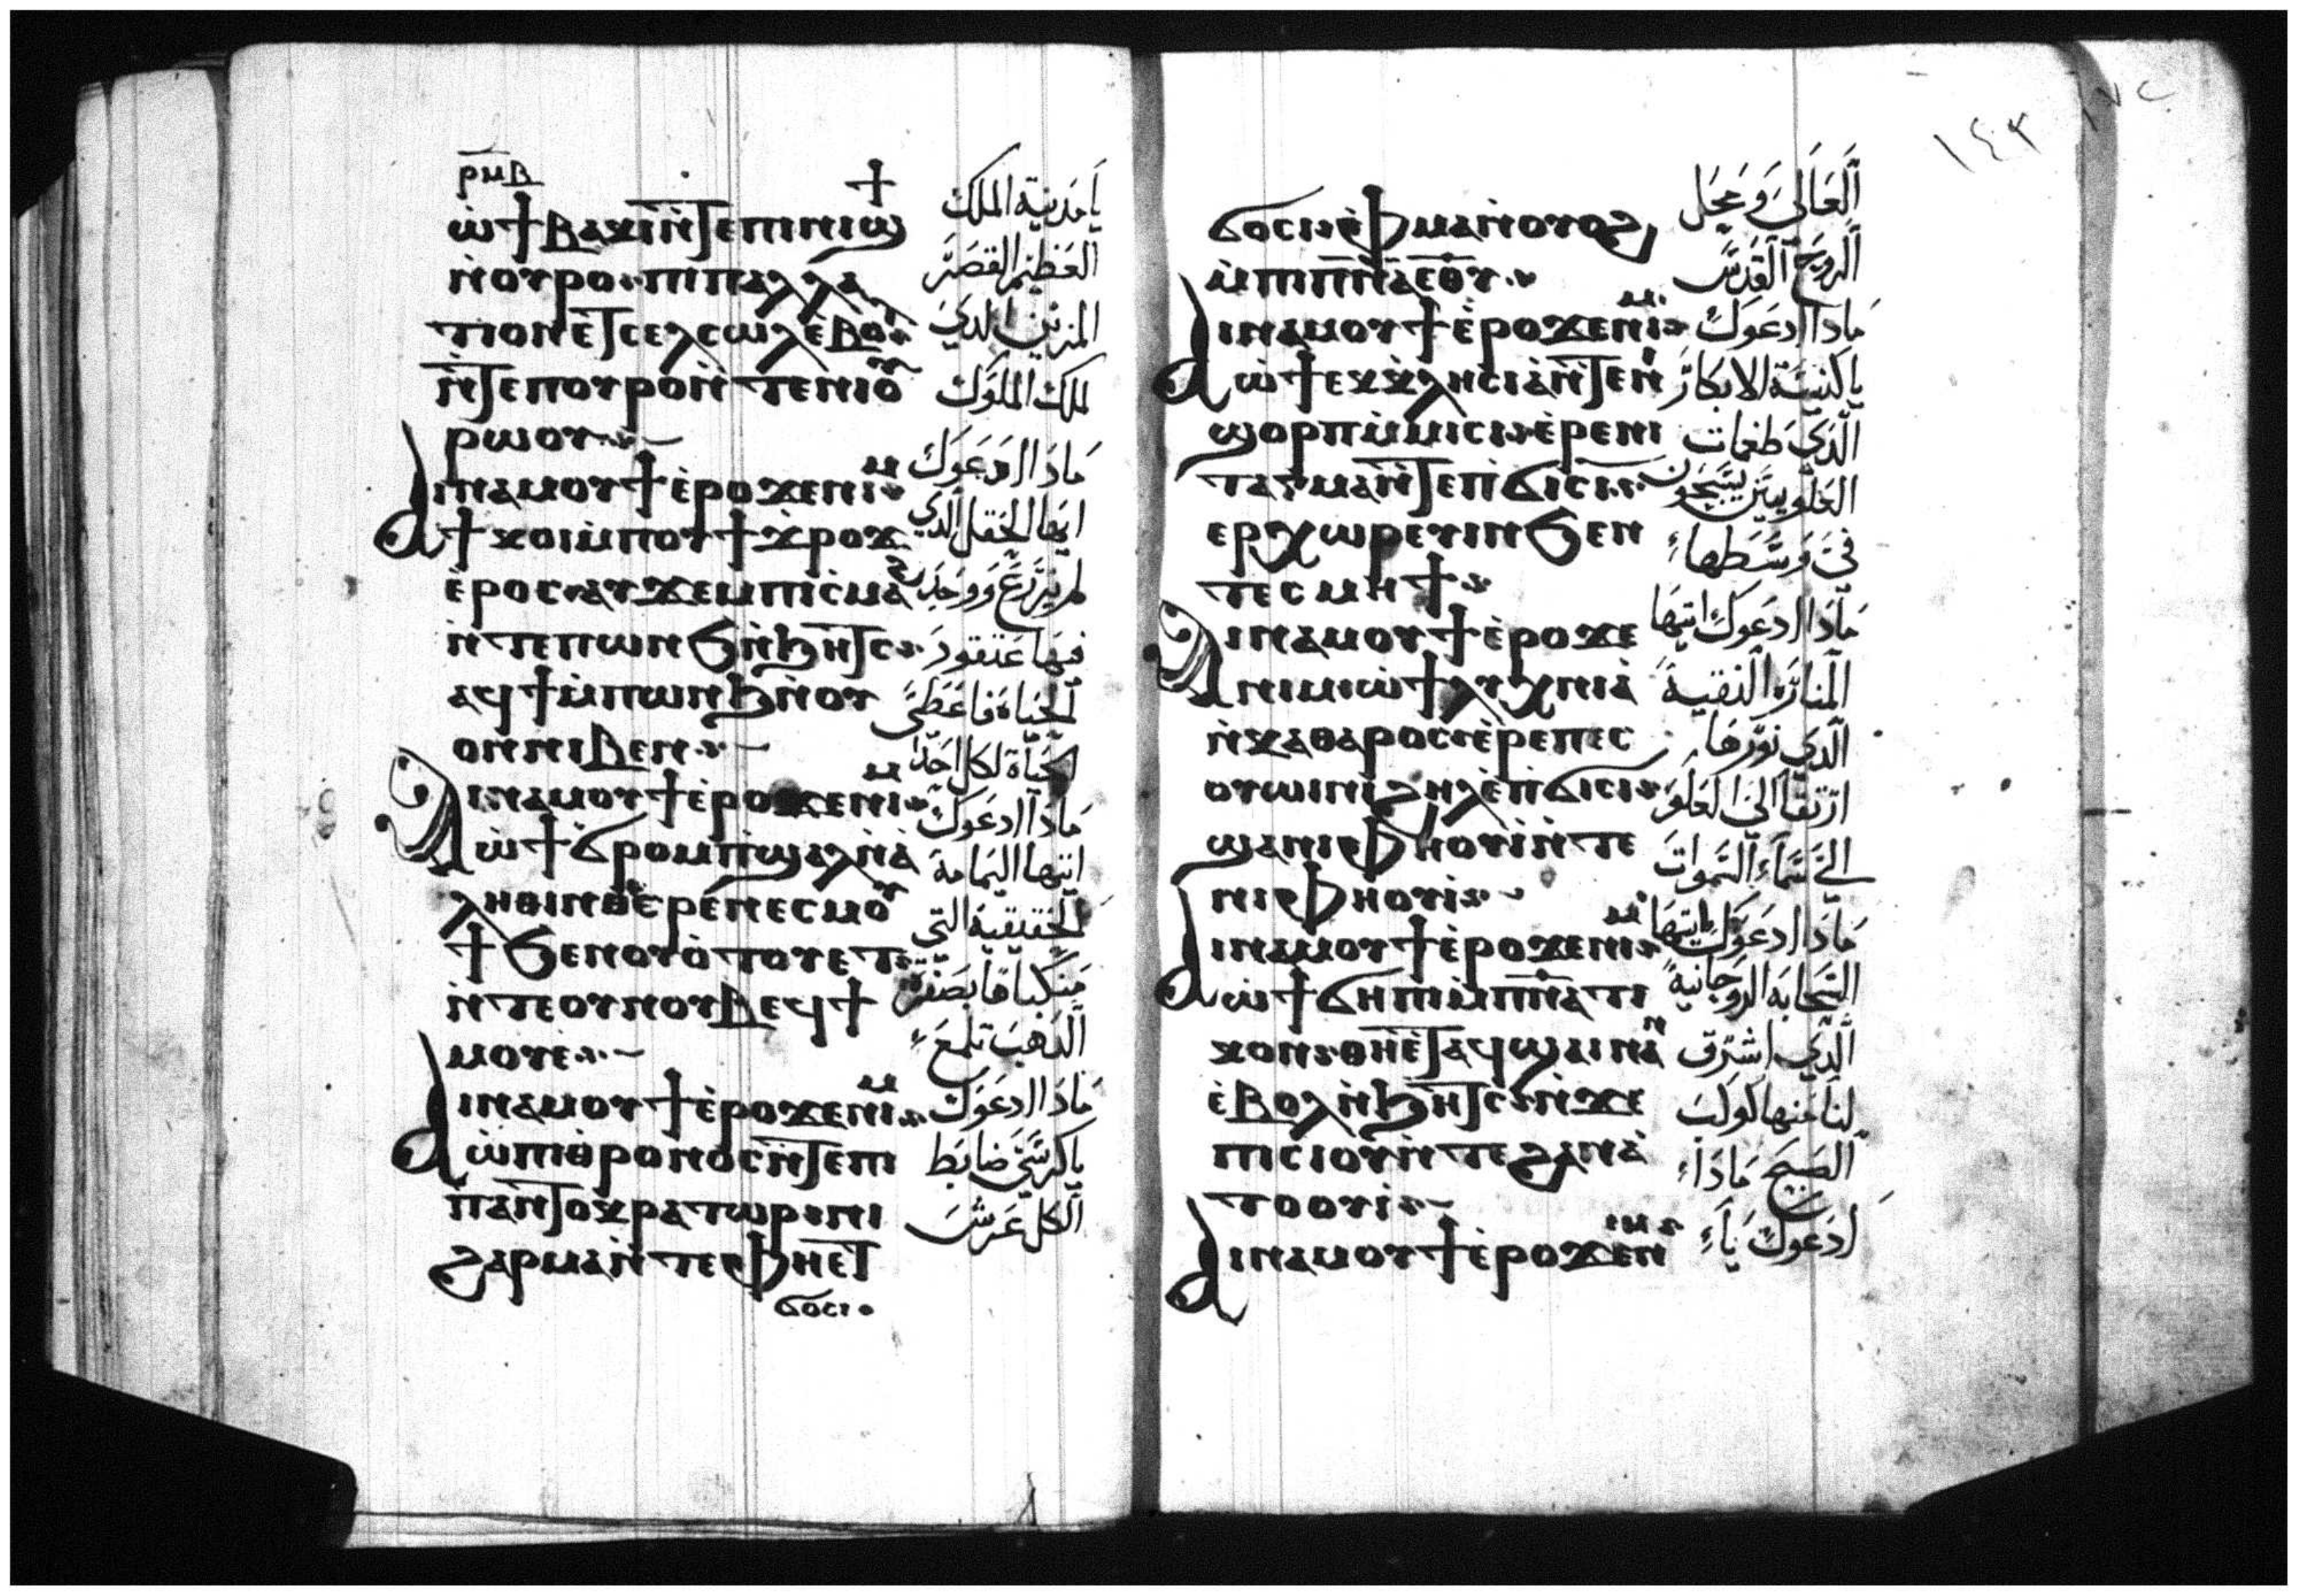 ⲣⲙⲃ
ⲱ̀ϯⲃⲁⲕⲓⲛ̀ⲧⲉⲡⲓⲛⲓϣϯ
ⲛ̀ⲟⲩⲣⲟ ⲡⲓⲡⲁⲗⲗⲁ
ⲧⲓⲟⲛ ⲉⲧⲥⲉⲗⲥⲱⲗ ⲉ̀ⲃⲟⲗ
ⲛ̀ⲧⲉⲡⲟⲩⲣⲟ ⲛ̀ⲧⲉⲛⲓⲟⲩ
ⲣⲱⲟⲩ
ⲁⲓⲛⲁⲙⲟⲩϯ ⲉ̀ⲣⲟ ϫⲉⲛⲓⲙ
ϯⲕⲟⲓ ⲙ̀ⲡⲟⲩϯϫⲣⲟϫ
ⲉ̀ⲣⲟⲥ ⲁⲩϫⲉⲙⲡⲓⲥⲙⲁϩ
ⲛ̀ⲧⲉⲡⲱⲛϧ ⲛ̀ϧⲏⲧⲥ
ⲁϥϯⲙ̀ⲡⲱⲛϧ ⲛ̀ⲟⲩ
ⲟⲛ ⲛⲓⲃⲉⲛ
ⲁⲓⲛⲁⲙⲟⲩϯ ⲉ̀ⲣⲟ ϫⲉⲛⲓⲙ
ⲱ̀ϯϭⲣⲟⲙⲡⲓϣⲁⲗⲛⲁ̀
ⲗⲏⲑⲓⲛⲏ ⲉ̀ⲣⲉⲛⲉⲥⲙⲟⲩ
ϯ ϧⲉⲛⲟⲩⲟ̀ⲧⲟⲩⲉⲧ
ⲛ̀ⲧⲉⲟⲩⲛⲟⲩⲃ ⲉϥϯ
ⲙⲟⲩⲉ
ⲁⲓⲛⲁⲙⲟⲩϯ ⲉ̀ⲣⲟ ϫⲉⲛⲓⲙ
ⲱ̀ⲡⲓⲑⲣⲟⲛⲟⲥ ⲛ̀ⲧⲉⲡⲓ
ⲡⲁⲛⲧⲟⲕⲣⲁⲧⲱⲣ ⲡⲓ
ϩⲁⲣⲙⲁ ⲛ̀ⲧⲉⲫⲏⲉⲧ
ϭⲟⲥⲓ
يا مدينة الملك
العظيم القصر
المزين الذي
لملك الملوك
ماذا ادعوك
ايها الحقل الذي
لم يزرع ووجد
فيها عنقود
الحياة فاعطي
الحياة لكل احد
ماذا ادعوك
ايتها اليمامة
الحقيقية التي
منكباها بصفرة
الذهب تلمع
ماذا ادعوك
يا كرسي ضابط
الكل عرش
١٤٣
ϭⲟⲥⲓ ⲫⲙⲁ ⲛ̀ⲟⲩⲟϩ
ⲙ̀ⲡⲓⲡⲛⲁ ⲉⲑⲩ
ⲁⲓⲛⲁⲙⲟⲩϯ ⲉ̀ⲣⲟ ϫⲉⲛⲓⲙ
ⲱ̀ϯⲉⲕⲕⲗⲏⲥⲓⲁ ⲛ̀ⲧⲉⲛⲓ
ϣⲟⲣⲡ ⲙ̀ⲙⲓⲥⲓ ⲉ̀ⲣⲉⲛⲓ
ⲧⲁⲅⲙⲁ ⲛ̀ⲧⲉⲡϭⲓⲥⲓ
ⲉⲣⲭⲱⲣⲉⲩⲓⲛ ϧⲉⲛ
ⲧⲉⲥⲙⲏϯ
ⲁⲓⲛⲁⲙⲟⲩϯ ⲉ̀ⲣⲟ ϫⲉ
ⲛⲓⲙ ⲱ̀ϯⲗⲩⲭⲛⲓⲁ̀
ⲛ̀ⲕⲁⲑⲁⲣⲟⲥ ⲉ̀ⲣⲉⲡⲉⲥ
ⲟⲩⲱⲓⲛⲓ ϩⲏⲗ ⲉ̀ⲡϭⲓⲥⲓ
ϣⲁⲛⲓⲫⲏⲟⲩⲓ̀ ⲛ̀ⲧⲉ
ⲛⲓⲫⲏⲟⲩⲓ̀
ⲁⲓⲛⲁⲙⲟⲩϯ ⲉ̀ⲣⲟ ϫⲉⲛⲓⲙ
ⲱ̀ϯϭⲏⲡⲓ ⲙ̀ⲡⲛⲁⲧⲓ
ⲕⲟⲛ ⲑⲏⲉⲧⲁϥϣⲁⲓ ⲛⲁⲛ
ⲉ̀ⲃⲟⲗ ⲛ̀ϧⲏⲧⲥ ⲛ̀ϫⲉ
ⲡⲓⲥⲓⲟⲩ ⲛ̀ⲧⲉϩⲁⲛⲁ̀
ⲧⲟⲟⲩⲓ̀
ⲁⲓⲛⲁⲙⲟⲩϯ ⲉ̀ⲣⲟ ϫⲉⲛⲓⲙ
العالي ومحل
الروح القدس
ماذا ادعوك
يا كنيسة الابكار
الذي طغمات
العلويين يسبحون
في وسطها
ماذا ادعوك ايتها
المنارة النقية
الذي نورها
ارتقا الى العلو
الى سماء السموات
ماذا ادعوك ايتها
السحابة الروحانية
الذي اشرق
لنا منها كوكب
الصبح ماذا
ادعوك يا